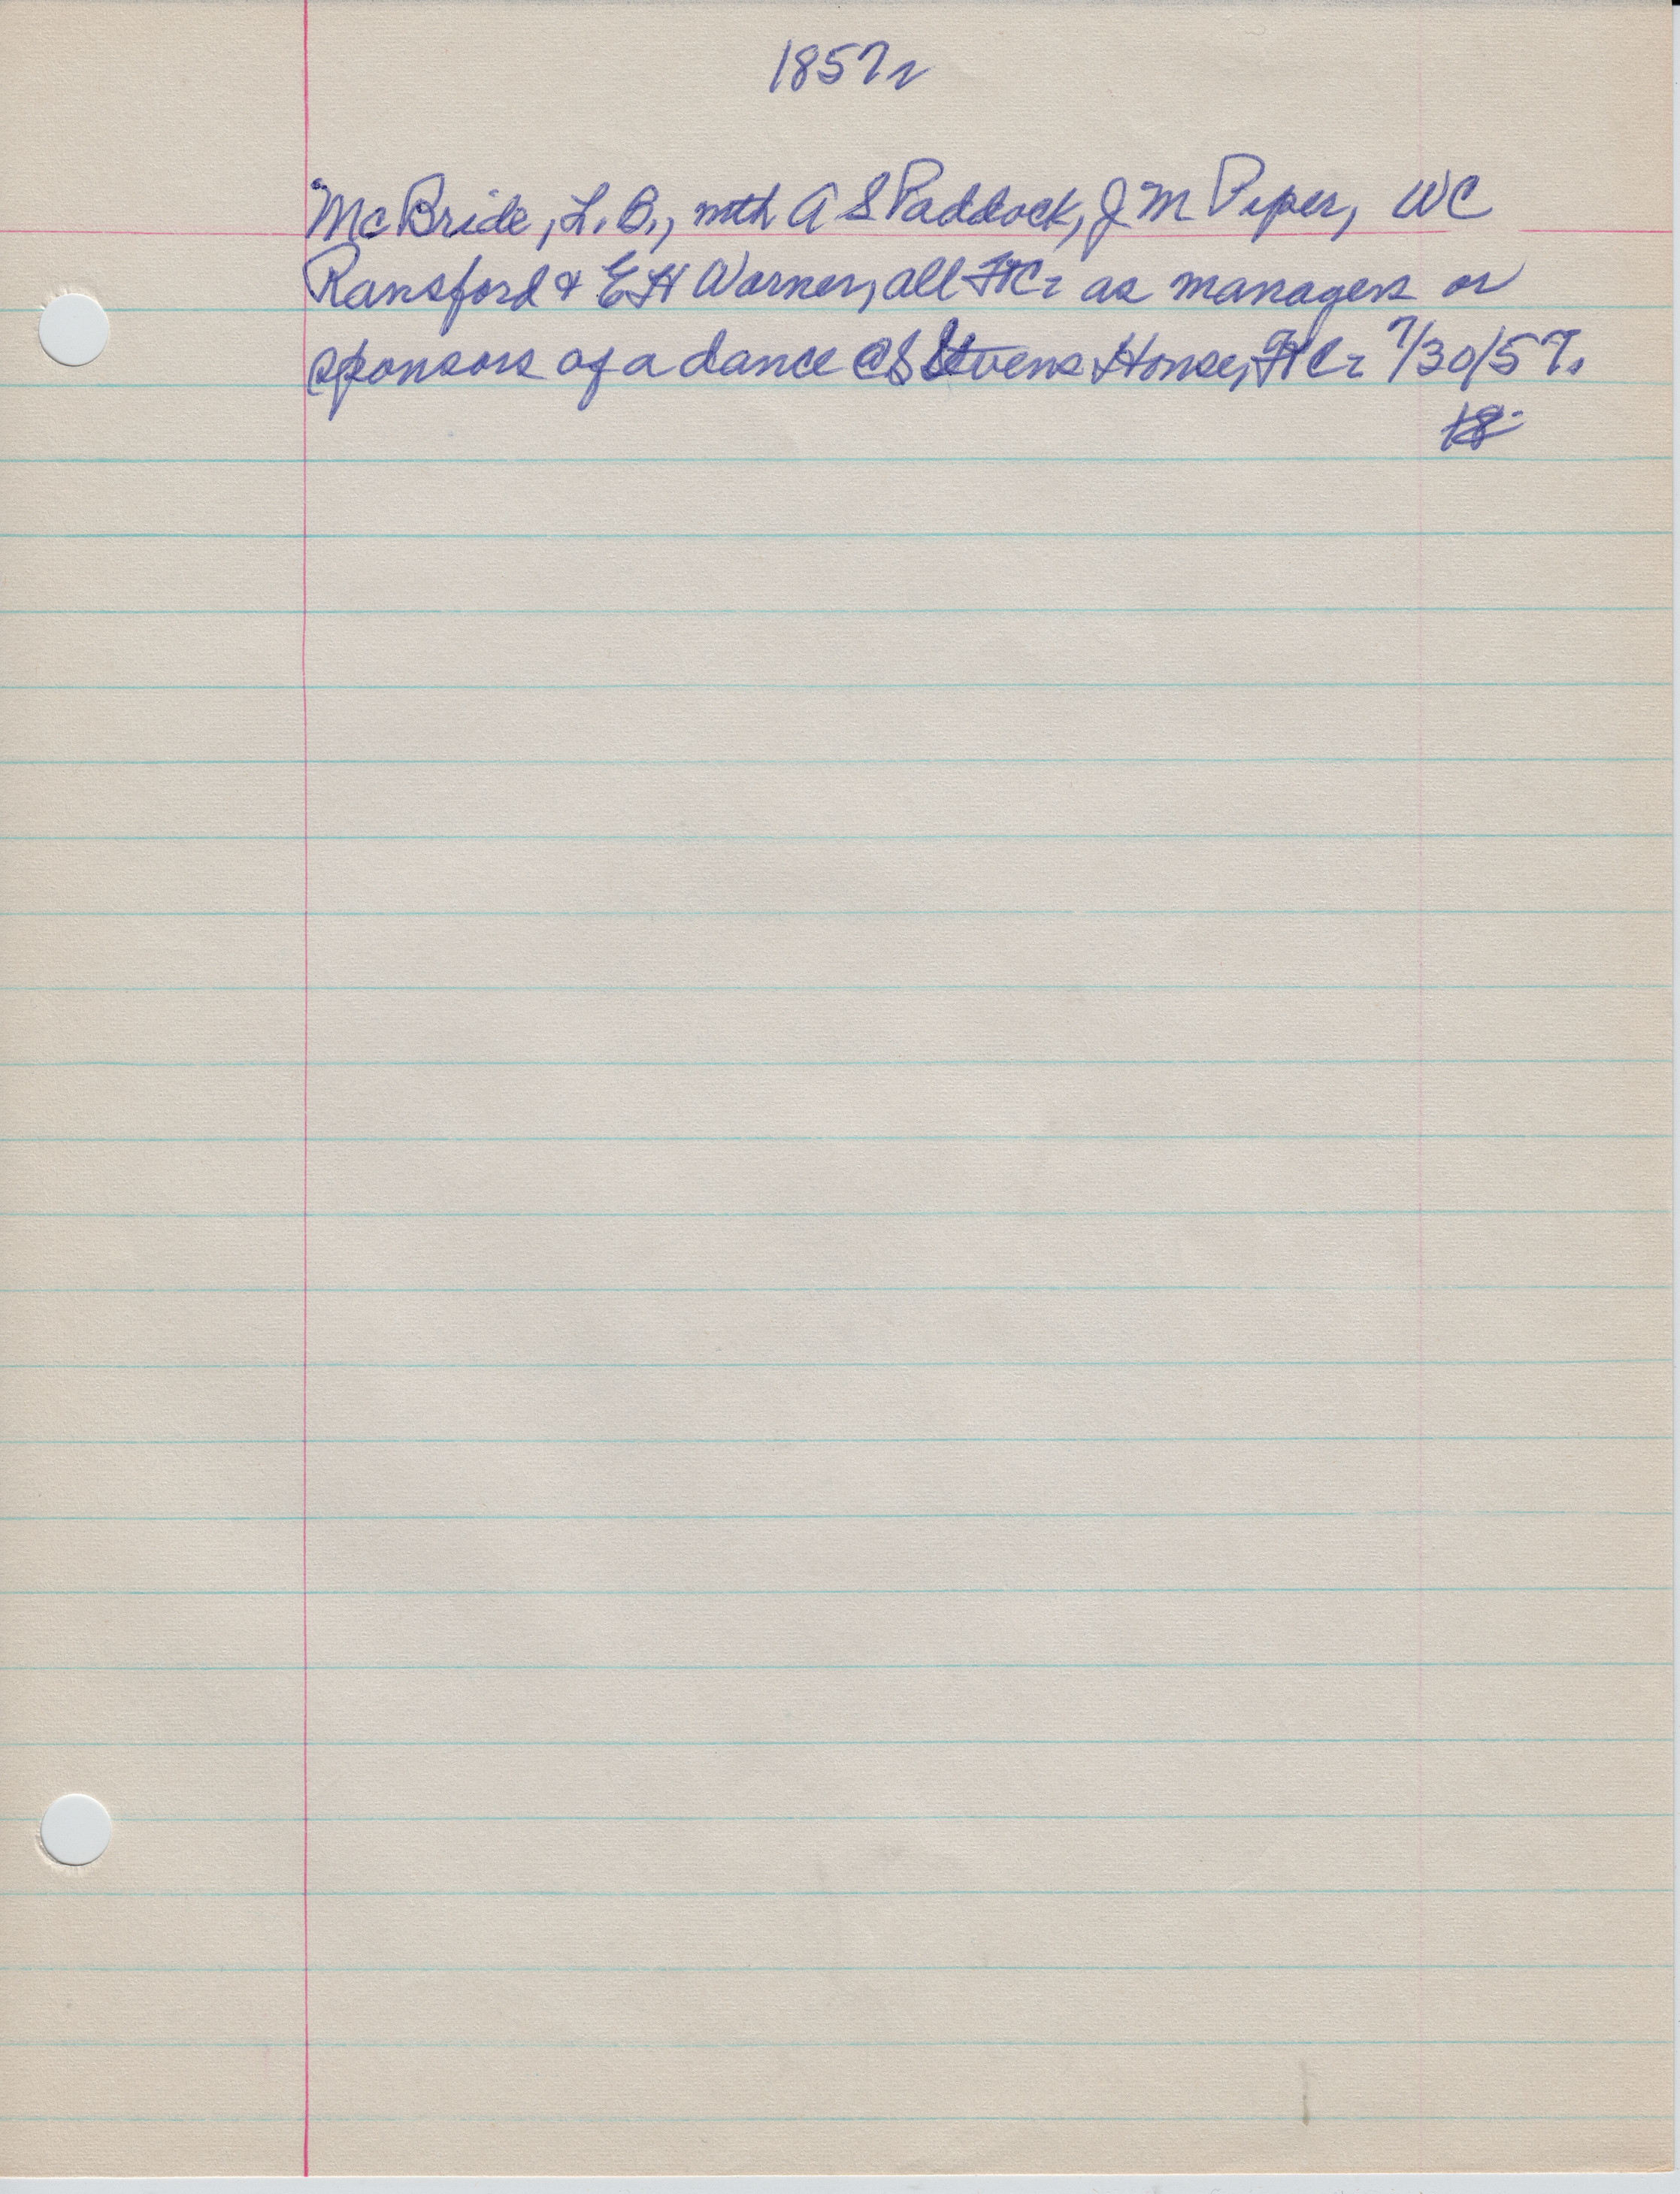 1857
McBride, L.B., with A S Paddock, J M Piper, WC
Ransford & EH Warner, all as managers or
sponsors of a dance @ Stevens House, 7/30/57.